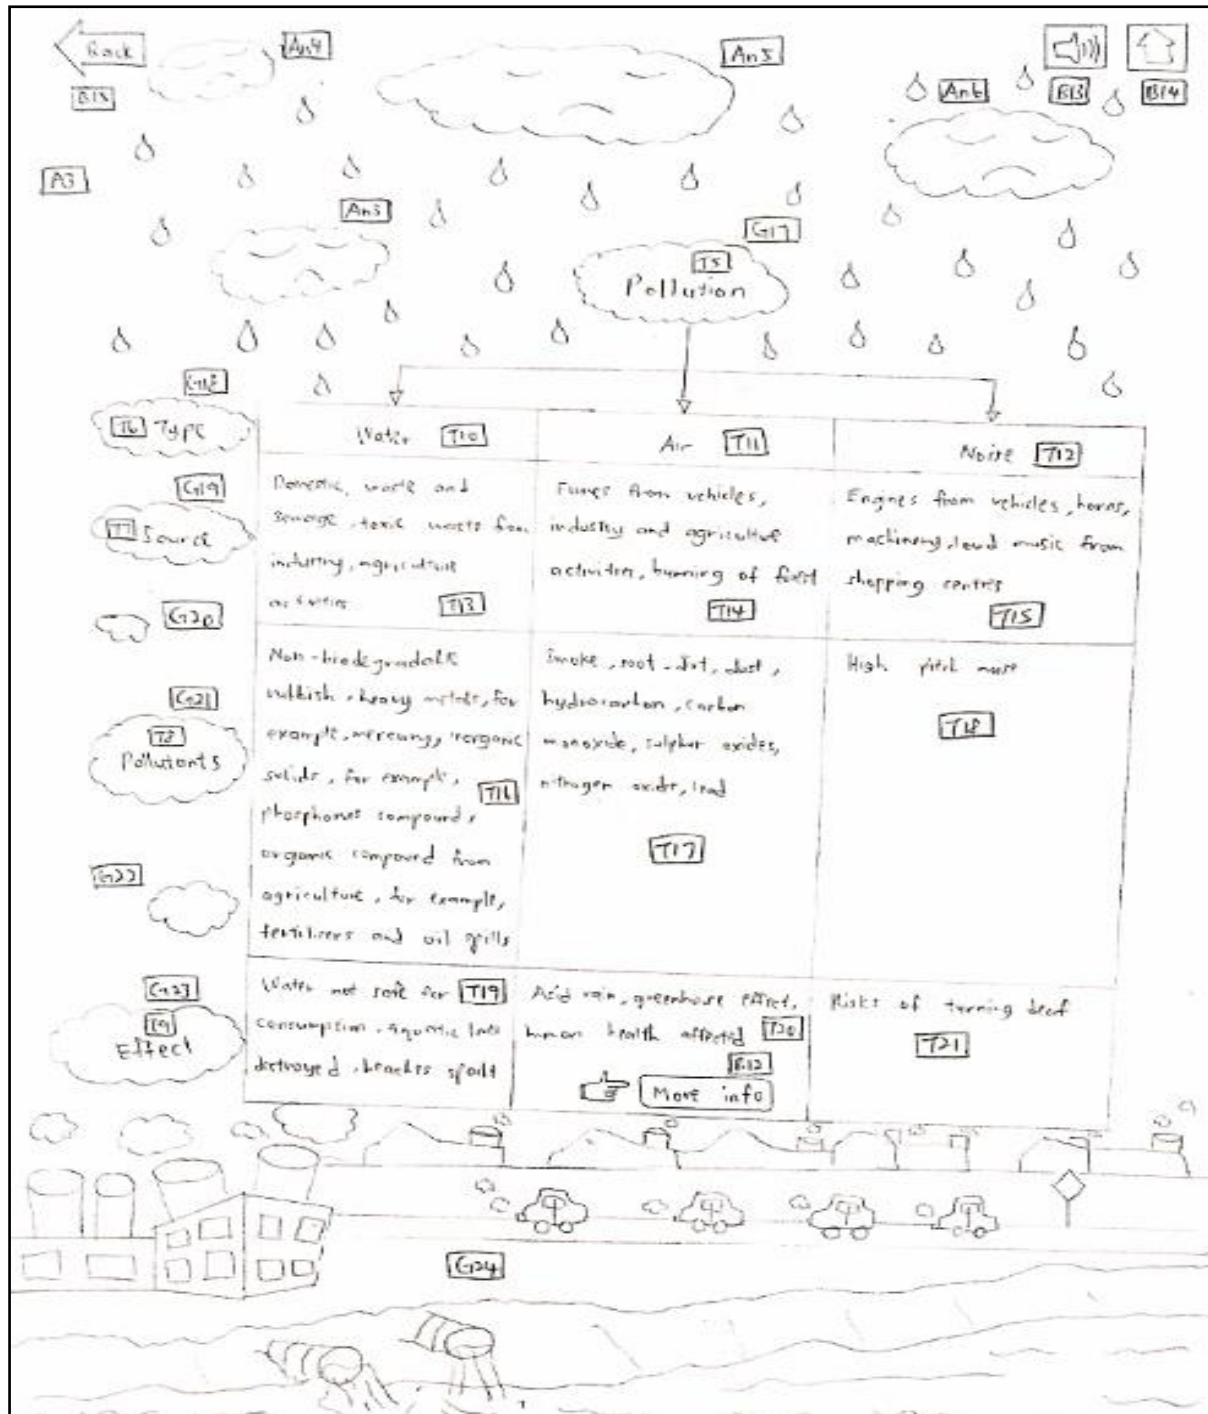 Back
An4
An5
B15
An6
B13
B14
A3
An3
G17
T5
Pollution
G18
T6 Type
Water T10
Air T11
Noise T12
G19
T7 Source
Domestic, waste and
sewage, toxic waste from
industry, agriculture
activities T13
Fumes from vehicles,
industry and agriculture
activities, burning of forest
T14
Engines from vehicles, horns,
machinery, loud music from
shopping centres
T15
G20
G21
T8
Pollutants
Non-biodegradable
rubbish, heavy metals, for
example, mercury, inorganic
solids, for example, T16
compounds,
organic compound from
agriculture, for example,
fertilizers and oil
Smoke, soot, dirt, dust,
hydrocarbon, carbon
monoxide, sulphur oxides,
nitrogen oxide, lead
T17
High pitch noise
T18
G22
G23
T9
Effect
Water not safe for T19
consumption, aquatic
destroyed, beaches spoilt
Acid rain, greenhouse effect,
human health affected T20
B12
More info
Risks of turning deaf
T21
G24